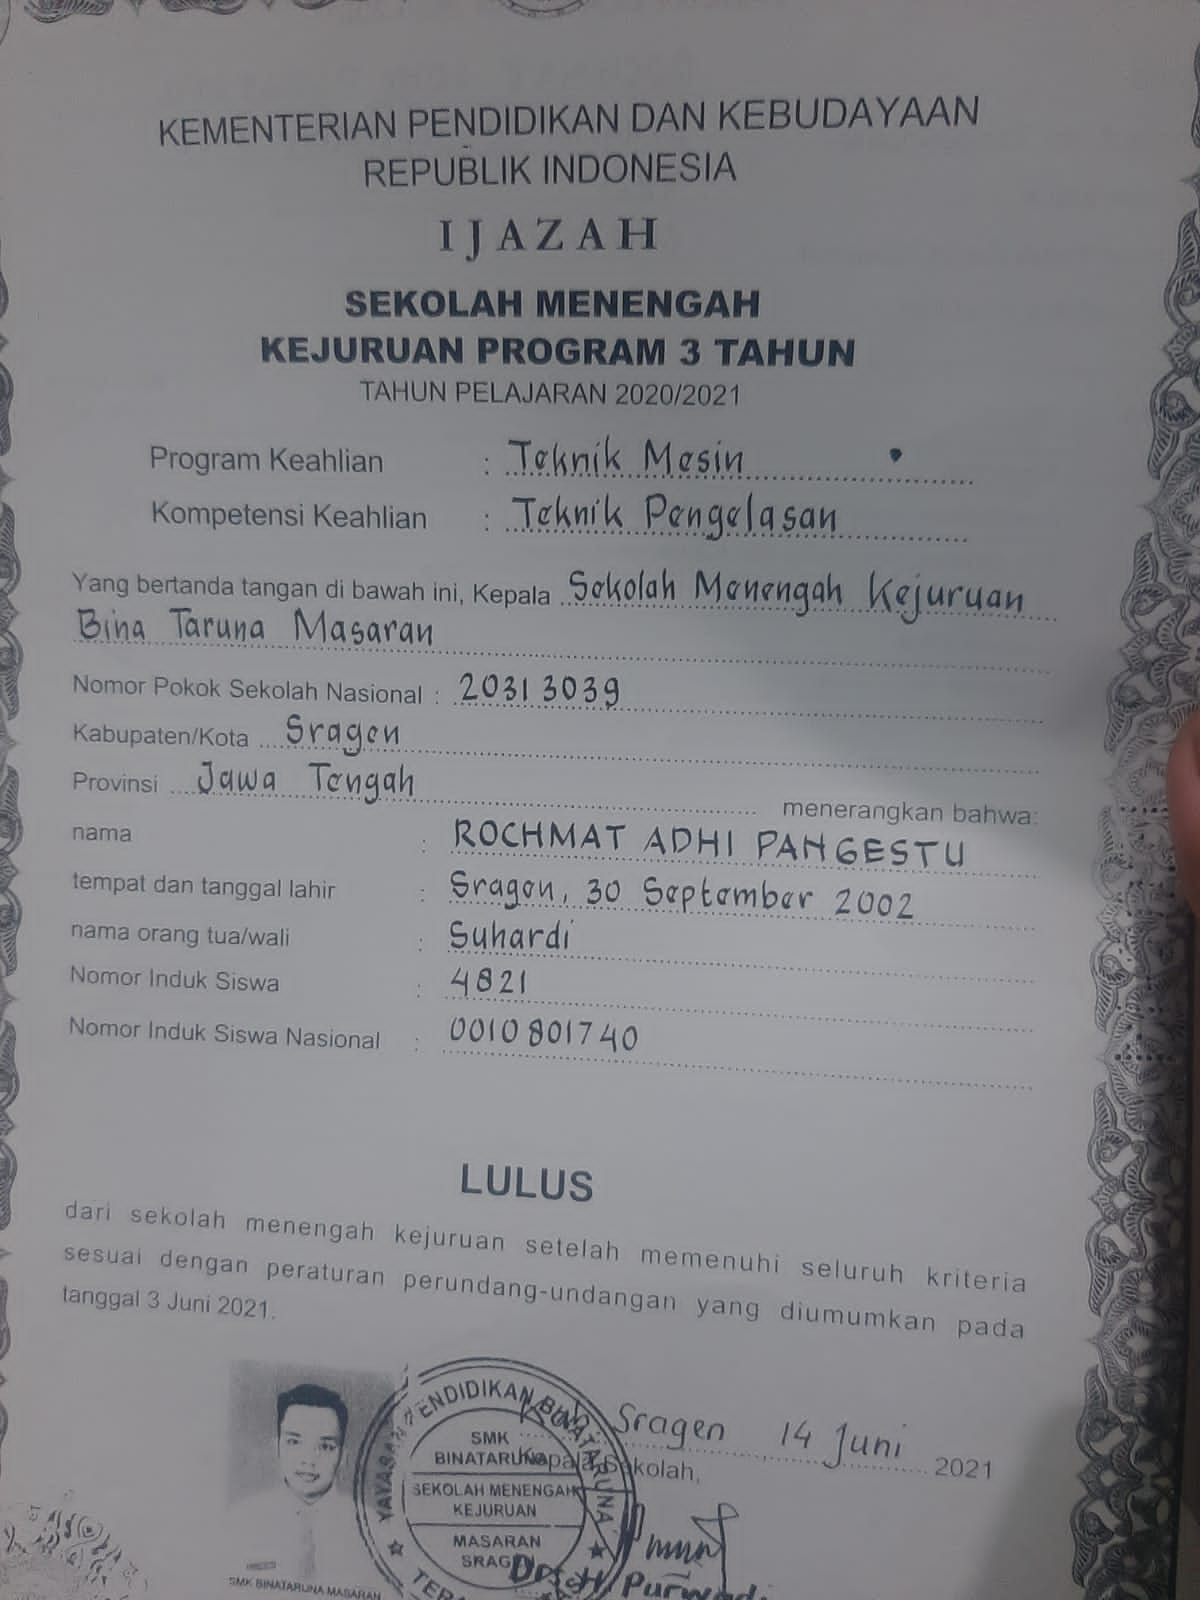 KEMENTERIAN PENDIDIKAN DAN KEBUDAYAAN
REPUBLIK INDONESIA
IJAZAH
SEKOLAH MENENGAH
KEJURUAN PROGRAM 3 TAHUN
TAHUN PELAJARAN 2020/2021
Program Keahlian : Teknik Mesin
Kompetensi Keahlian : Teknik Pengelasan
Yang bertanda tangan di bawah ini, Kepala Sekolah Menengah Kejuruan
Bina Taruna Masaran
Nomor Pokok Sekolah Nasional : 20313039
Kabupaten/Kota Sragen
Provinsi Jawa Tengah menerangkan bahwa:
nama : ROCHMAT ADHI PANGESTU
tempat dan tanggal lahir : Sragen, 30 September 2002
nama orang tua/wali : Suhardi
Nomor Induk Siswa : 4821
Nomor Induk Siswa Nasional : 0010801740
LULUS
dari sekolah menengah kejuruan setelah memenuhi seluruh kriteria
sesuai dengan peraturan perundang-undangan yang diumumkan pada
tanggal 3 Juni 2021.
Sragen 14 Juni 2021
Kepala Sekolah,
YAYASAN PENDIDIKAN BINATARUNA
SMK
BINATARUNA
SEKOLAH MENENGAH
KEJURUAN
MASARAN
SRAGEN
Drs. H. Purwadi
SMK BINATARUNA MASARAN